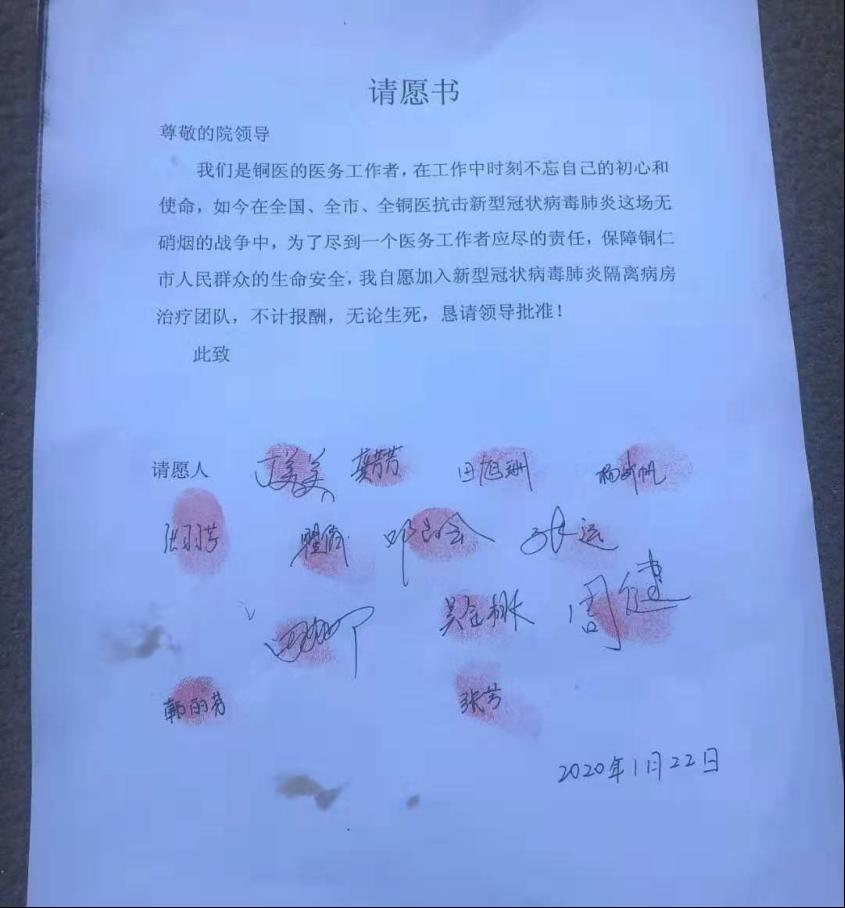 请愿书
尊敬的院领导
我们是铜医的医务工作者，在工作中时刻不忘自己的初心和
使命，如今在全国、全市、全铜医抗击新型冠状病毒肺炎这场无
硝烟的战争中，为了尽到一个医务工作者应尽的责任，保障铜仁
市人民群众的生命安全，我自愿加入新型冠状病毒肺炎隔离病房
治疗团队，不计报酬，无论生死，恳请领导批准！
此致
请愿人 田旭珊
张羽芳 张运
周健
韩丽芳 张芳
2020年1月22日